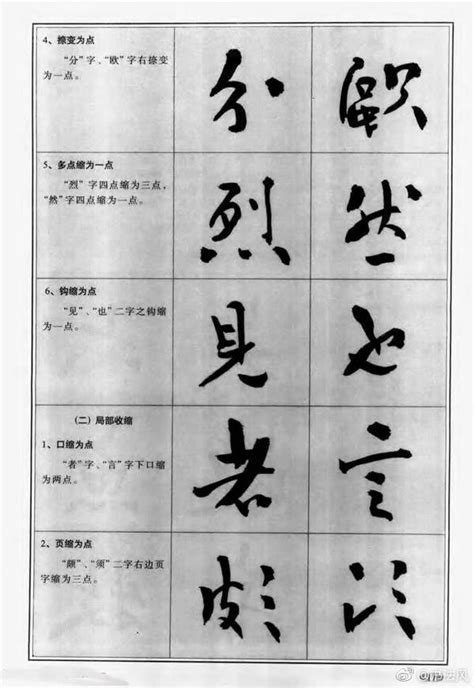 4、捺变为点
“分”字、“欧”字右捺变
为一点。
分 欧
5、多点缩为一点
“烈”字四点缩为三点，
“然”字四点缩为一点。
烈 然
6、钩缩为点
“见”、“也”二字之钩缩
为一点。
見 也
(二) 局部收缩
1、口缩为点
“者”字、“言”字下口缩
为两点。
者 言
2、页缩为点
“颇”、“须”二字右边页
字缩为三点。
颇 须